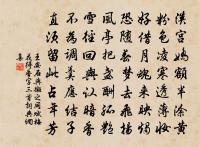 漢宮嬌額半涂黃
粉色凌寒透薄妝
好借月魂來映燭
恐隨春夢去飛揚
風亭把盞酬孤艷
雪徑回輿認暗香
不為調羹應結子
直須留此占年芳
王安石與微之同賦梅
花得香字三首詞典網
集